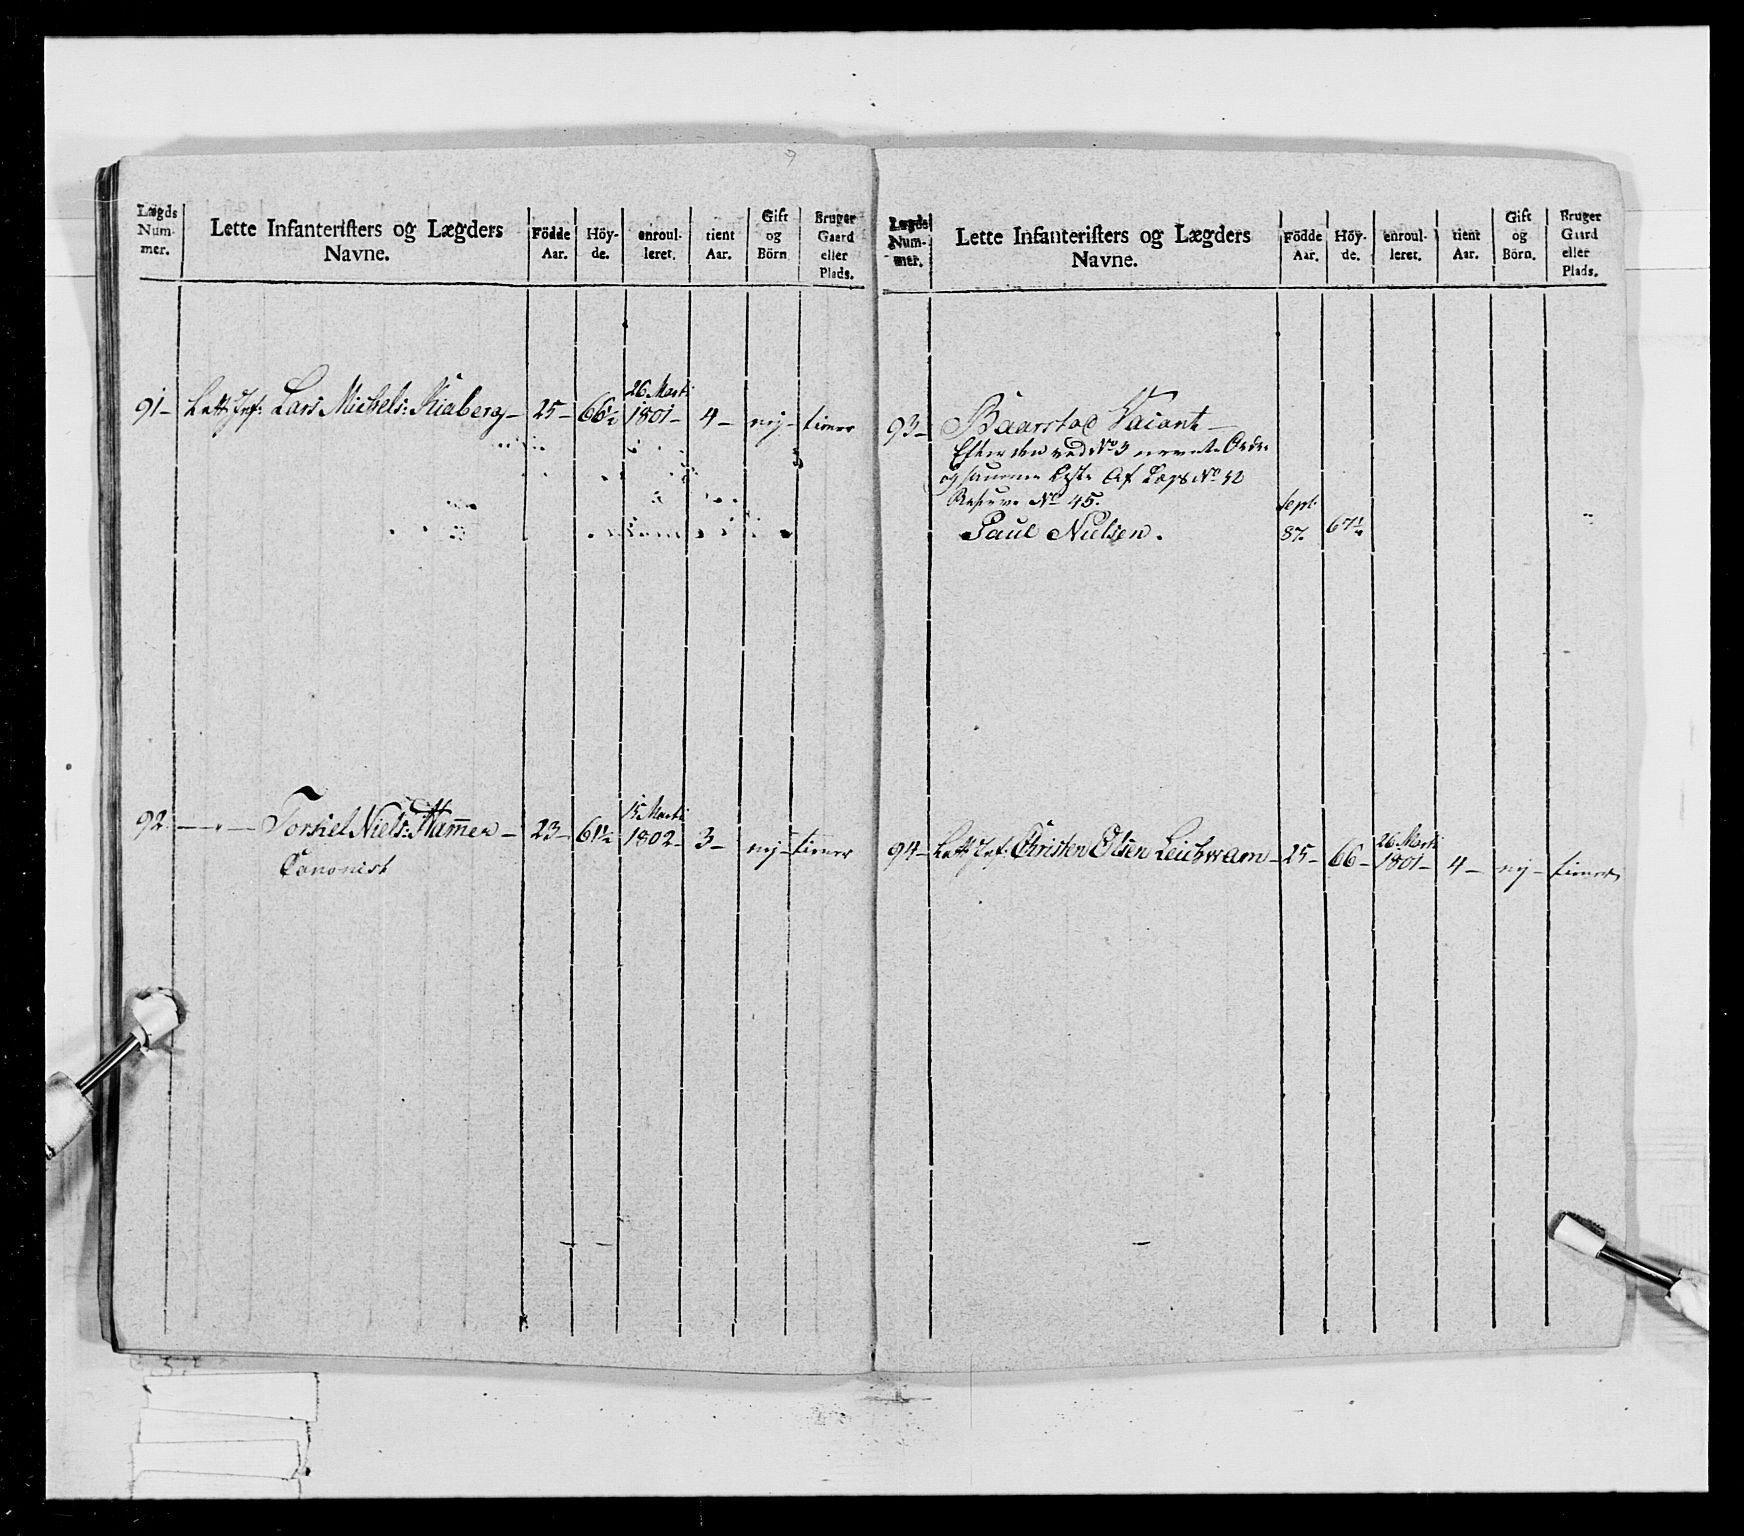 Lægds Num- mer.
Lette Infanteristers og Lægders Navne.
Födde Aar.
Höy- de.
enroul- leret.
tient Aar.
Gift og Börn
Bruger Gaard eller Plads.
91 – Lett Inf: Lars Michels: Kiaberg – 25 – 66½ 26 Marti 1801 – 4 – nej – tiener
92. – „ – Torkiel Niels: Ham̄er – 23 – 61½ 15 Marti 1802 – 3 – nej – tiener
Canonist
Lægds Num- mer.
Lette Infanteristers og Lægders Navne.
Födde Aar.
Höy- de.
enroul- leret.
tient Aar.
Gift og Börn.
Bruger Gaard eller Plads.
93 – Baarstad Vacant –
Efter den ved No 3 nevnte Ordre
og samme Liste Af No 42
Reserve No 45.
Paul Nielsen. Sept. 87. 67¼
94 – Lett Inf: Christen Olsen Leichvam – 25 – 66 – 26 Marti 1801 – 4 – nej – tiener